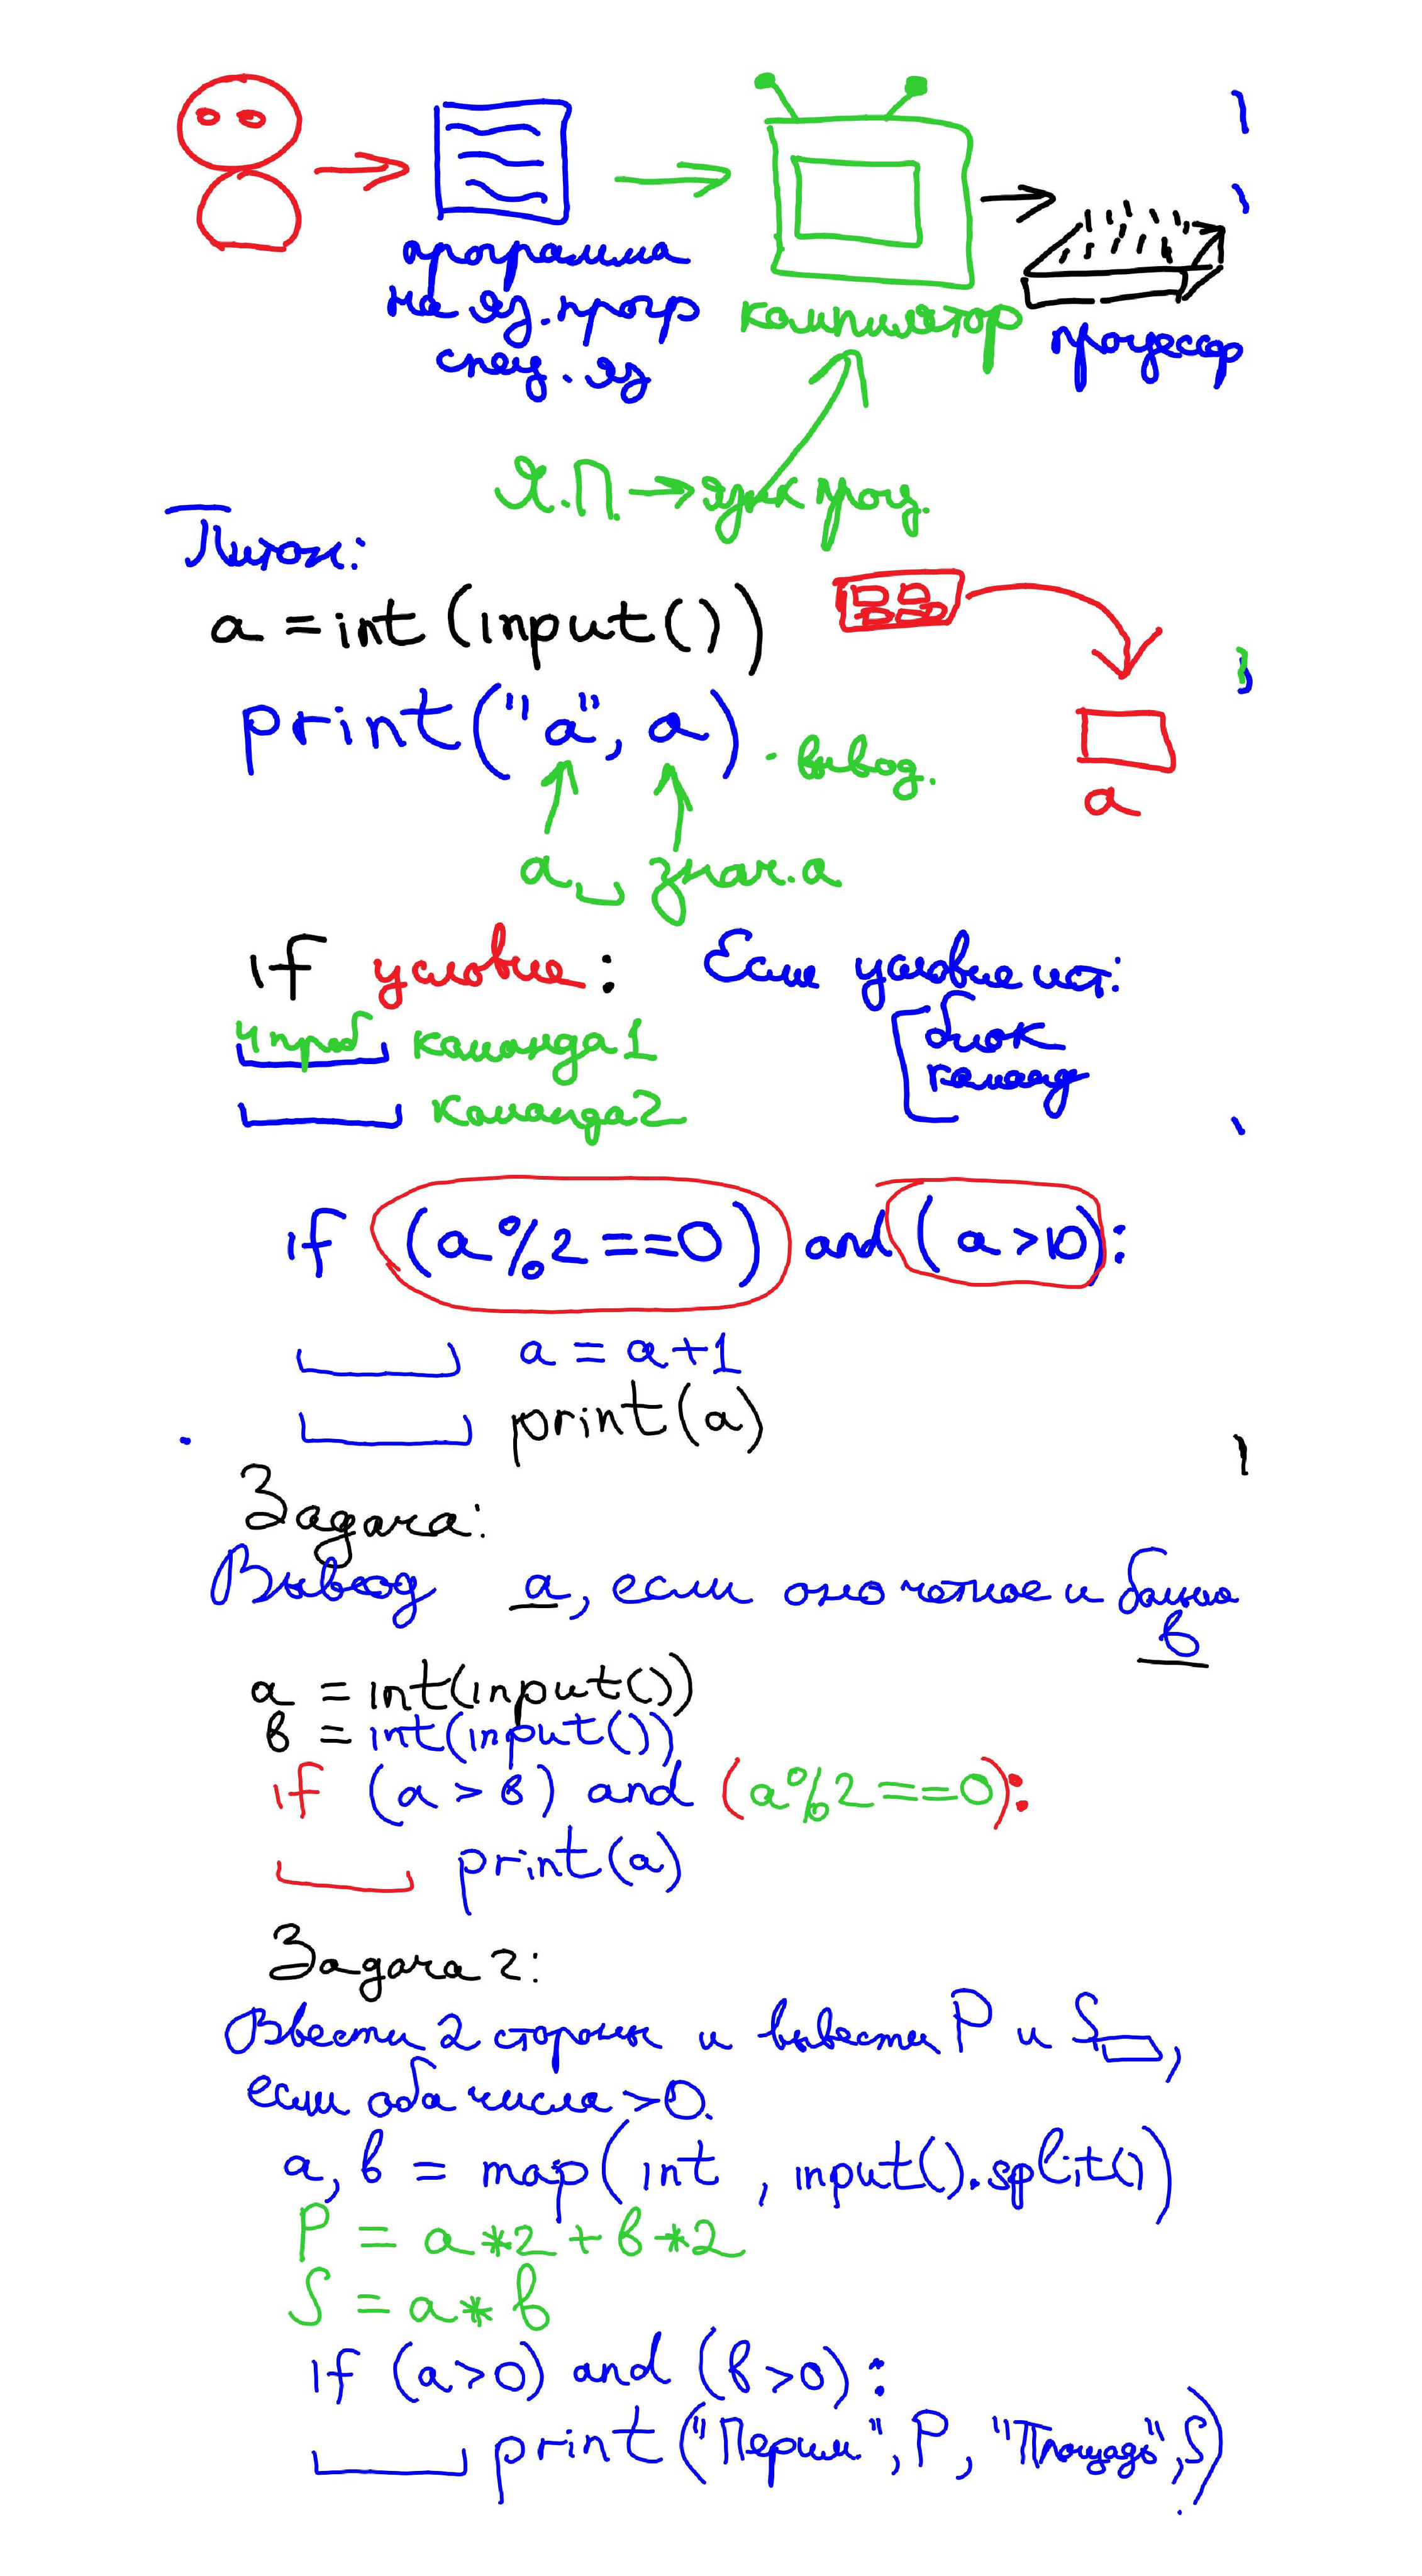 программа
на яз. прогр
спец. яз
компилятор
процессор
Я.П → язык проц.
Питон:
a = int (input())
print("a", a) - вывод.
a знач. a
if условие: Если условие ист:
4 проб команда 1
команда 2
блок
команд
if (a%2==0) and (a>10):
a = a+1
print(a)
Задача:
Вывод a, если оно четное и больше
в
a = int(input())
в = int(input())
if (a > в) and (a%2==0):
print(a)
Задача 2:
Ввести 2 стороны и вывести P и S,
если оба числа >0.
a, в = map(int, input().split())
P = a*2 + в*2
S = a* в
if (a>0) and (в>0):
print("Перим", P, "Площадь", S)